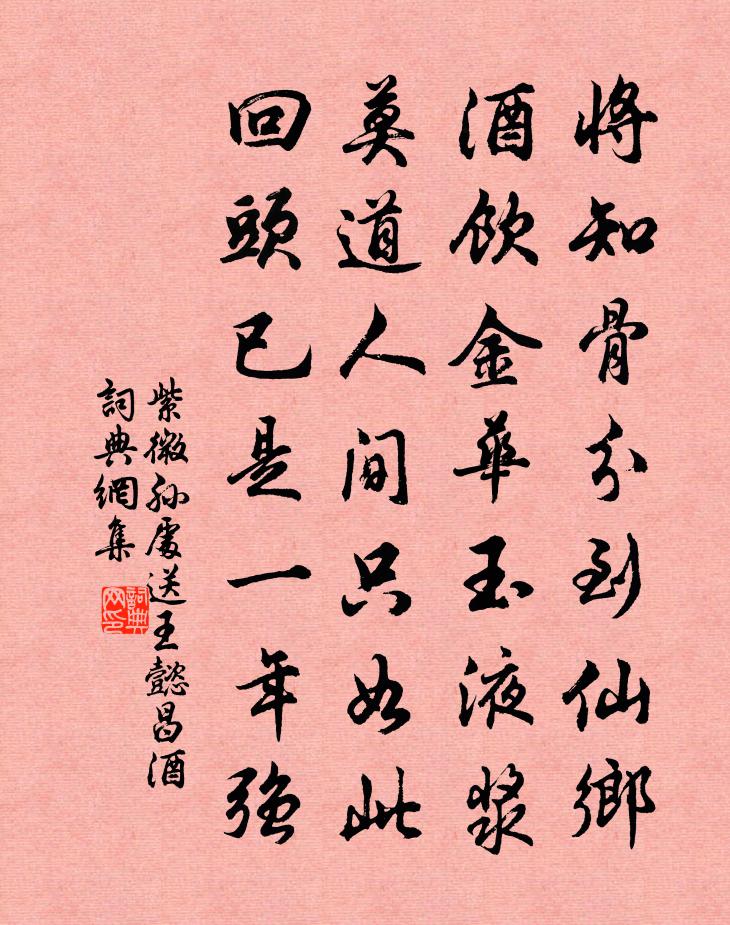 將知骨分到仙鄉
酒飲金華玉液漿
莫道人間只如此
回頭已是一年強
紫微孫處送王懿昌酒
詞典網集
詞典網印